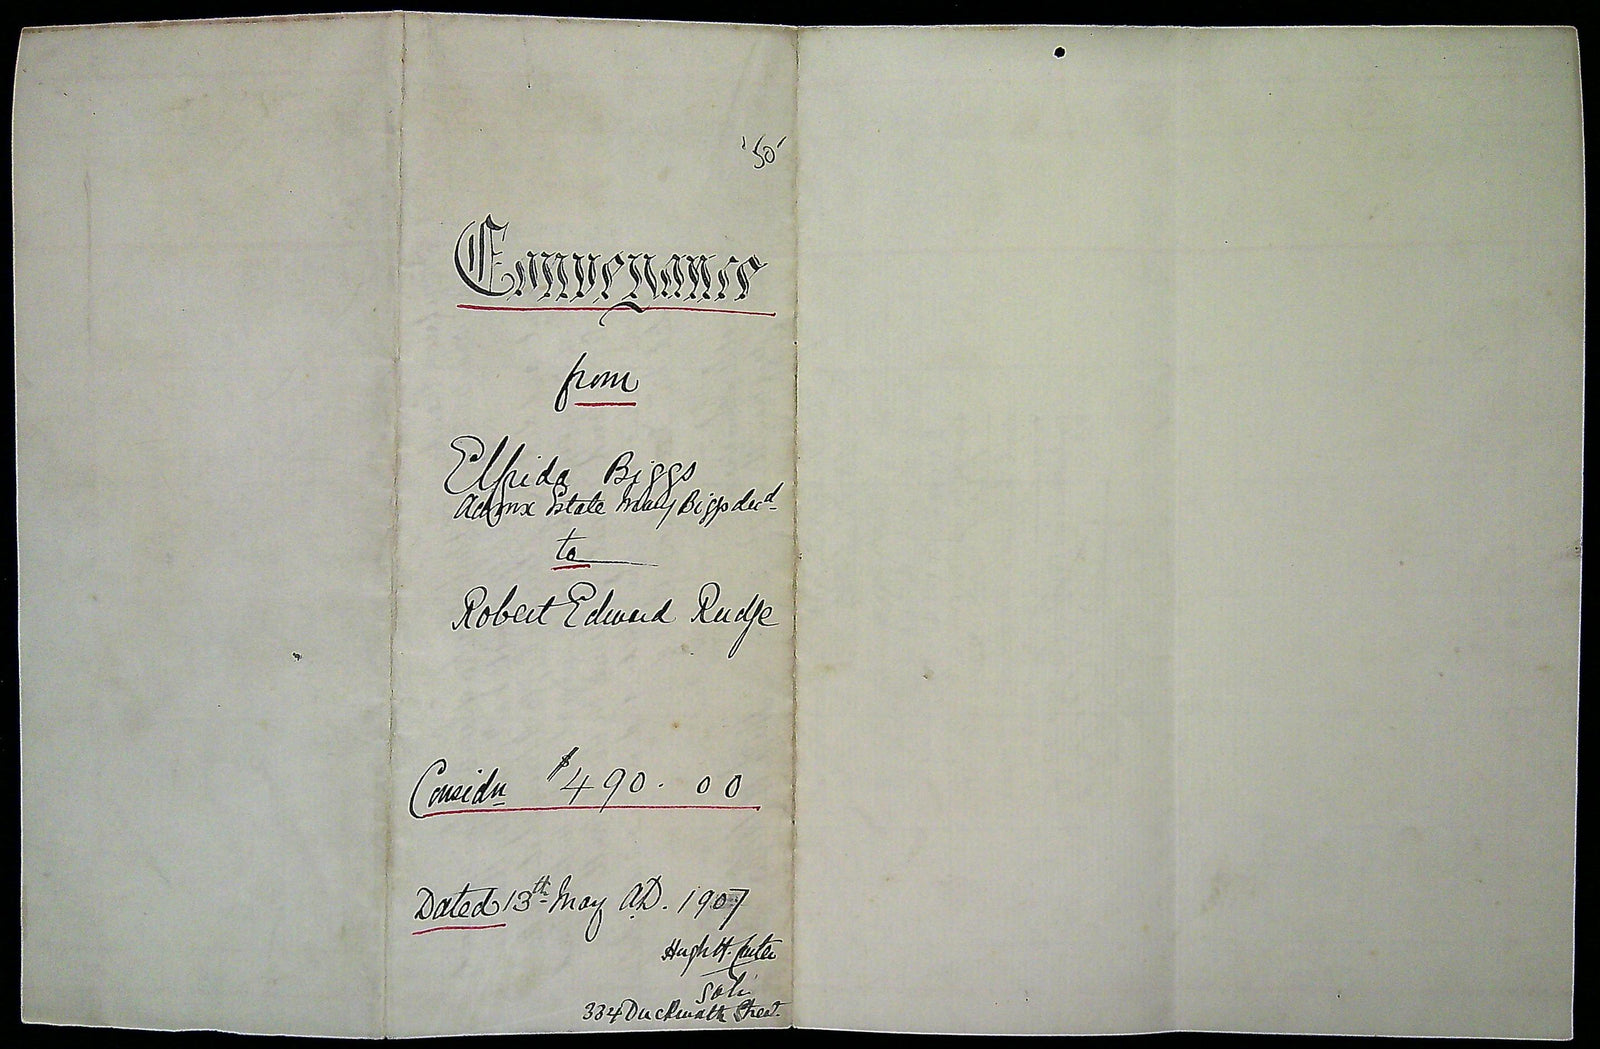 '50'
Conveyance
from
Elfrida Biggs
Admx Estate Mary Biggs decd
to
Robert Edward Rudge
Considn $490.00
Dated 13th May A.D. 1907
Hugh H. Carter
Solr
334 Duckworth Street.